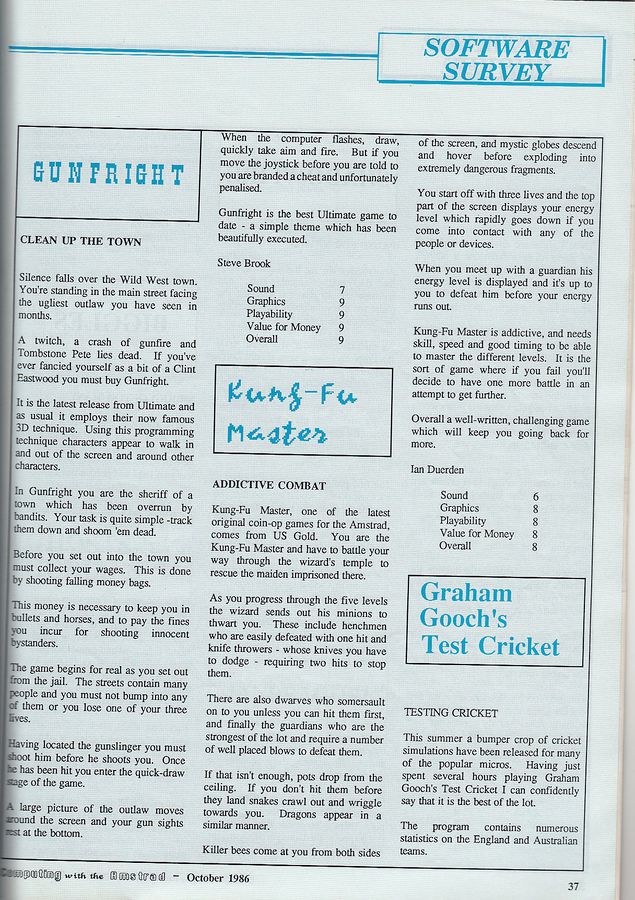 SOFTWARE
SURVEY
GUNFRIGHT
CLEAN UP THE TOWN
Silence falls over the Wild West town.
You're standing in the main street facing
the ugliest outlaw you have seen in
months.
A twitch, a crash of gunfire and
Tombstone Pete lies dead. If you've
ever fancied yourself as a bit of a Clint
Eastwood you must buy Gunfright.
It is the latest release from Ultimate and
as usual it employs their now famous
3D technique. Using this programming
technique characters appear to walk in
and out of the screen and around other
characters.
In Gunfright you are the sheriff of a
town which has been overrun by
bandits. Your task is quite simple -track
them down and shoom 'em dead.
Before you set out into the town you
must collect your wages. This is done
by shooting falling money bags.
This money is necessary to keep you in
bullets and horses, and to pay the fines
you incur for shooting innocent
bystanders.
The game begins for real as you set out
from the jail. The streets contain many
people and you must not bump into any
of them or you lose one of your three
lives.
Having located the gunslinger you must
shoot him before he shoots you. Once
he has been hit you enter the quick-draw
stage of the game.
A large picture of the outlaw moves
around the screen and your gun sights
rest at the bottom.
When the computer flashes, draw,
quickly take aim and fire. But if you
move the joystick before you are told to
you are branded a cheat and unfortunately
penalised.
Gunfright is the best Ultimate game to
date - a simple theme which has been
beautifully executed.
Steve Brook
Sound 7
Graphics 9
Playability 9
Value for Money 9
Overall 9
Kung-Fu
Master
ADDICTIVE COMBAT
Kung-Fu Master, one of the latest
original coin-op games for the Amstrad,
comes from US Gold. You are the
Kung-Fu Master and have to battle your
way through the wizard's temple to
rescue the maiden imprisoned there.
As you progress through the five levels
the wizard sends out his minions to
thwart you. These include henchmen
who are easily defeated with one hit and
knife throwers - whose knives you have
to dodge - requiring two hits to stop
them.
There are also dwarves who somersault
on to you unless you can hit them first,
and finally the guardians who are the
strongest of the lot and require a number
of well placed blows to defeat them.
If that isn't enough, pots drop from the
ceiling. If you don't hit them before
they land snakes crawl out and wriggle
towards you. Dragons appear in a
similar manner.
Killer bees come at you from both sides
of the screen, and mystic globes descend
and hover before exploding into
extremely dangerous fragments.
You start off with three lives and the top
part of the screen displays your energy
level which rapidly goes down if you
come into contact with any of the
people or devices.
When you meet up with a guardian his
energy level is displayed and it's up to
you to defeat him before your energy
runs out.
Kung-Fu Master is addictive, and needs
skill, speed and good timing to be able
to master the different levels. It is the
sort of game where if you fail you'll
decide to have one more battle in an
attempt to get further.
Overall a well-written, challenging game
which will keep you going back for
more.
Ian Duerden
Sound 6
Graphics 8
Playability 8
Value for Money 8
Overall 8
Graham
Gooch's
Test Cricket
TESTING CRICKET
This summer a bumper crop of cricket
simulations have been released for many
of the popular micros. Having just
spent several hours playing Graham
Gooch's Test Cricket I can confidently
say that it is the best of the lot.
The program contains numerous
statistics on the England and Australian
teams.
Computing with the Amstrad - October 1986
37